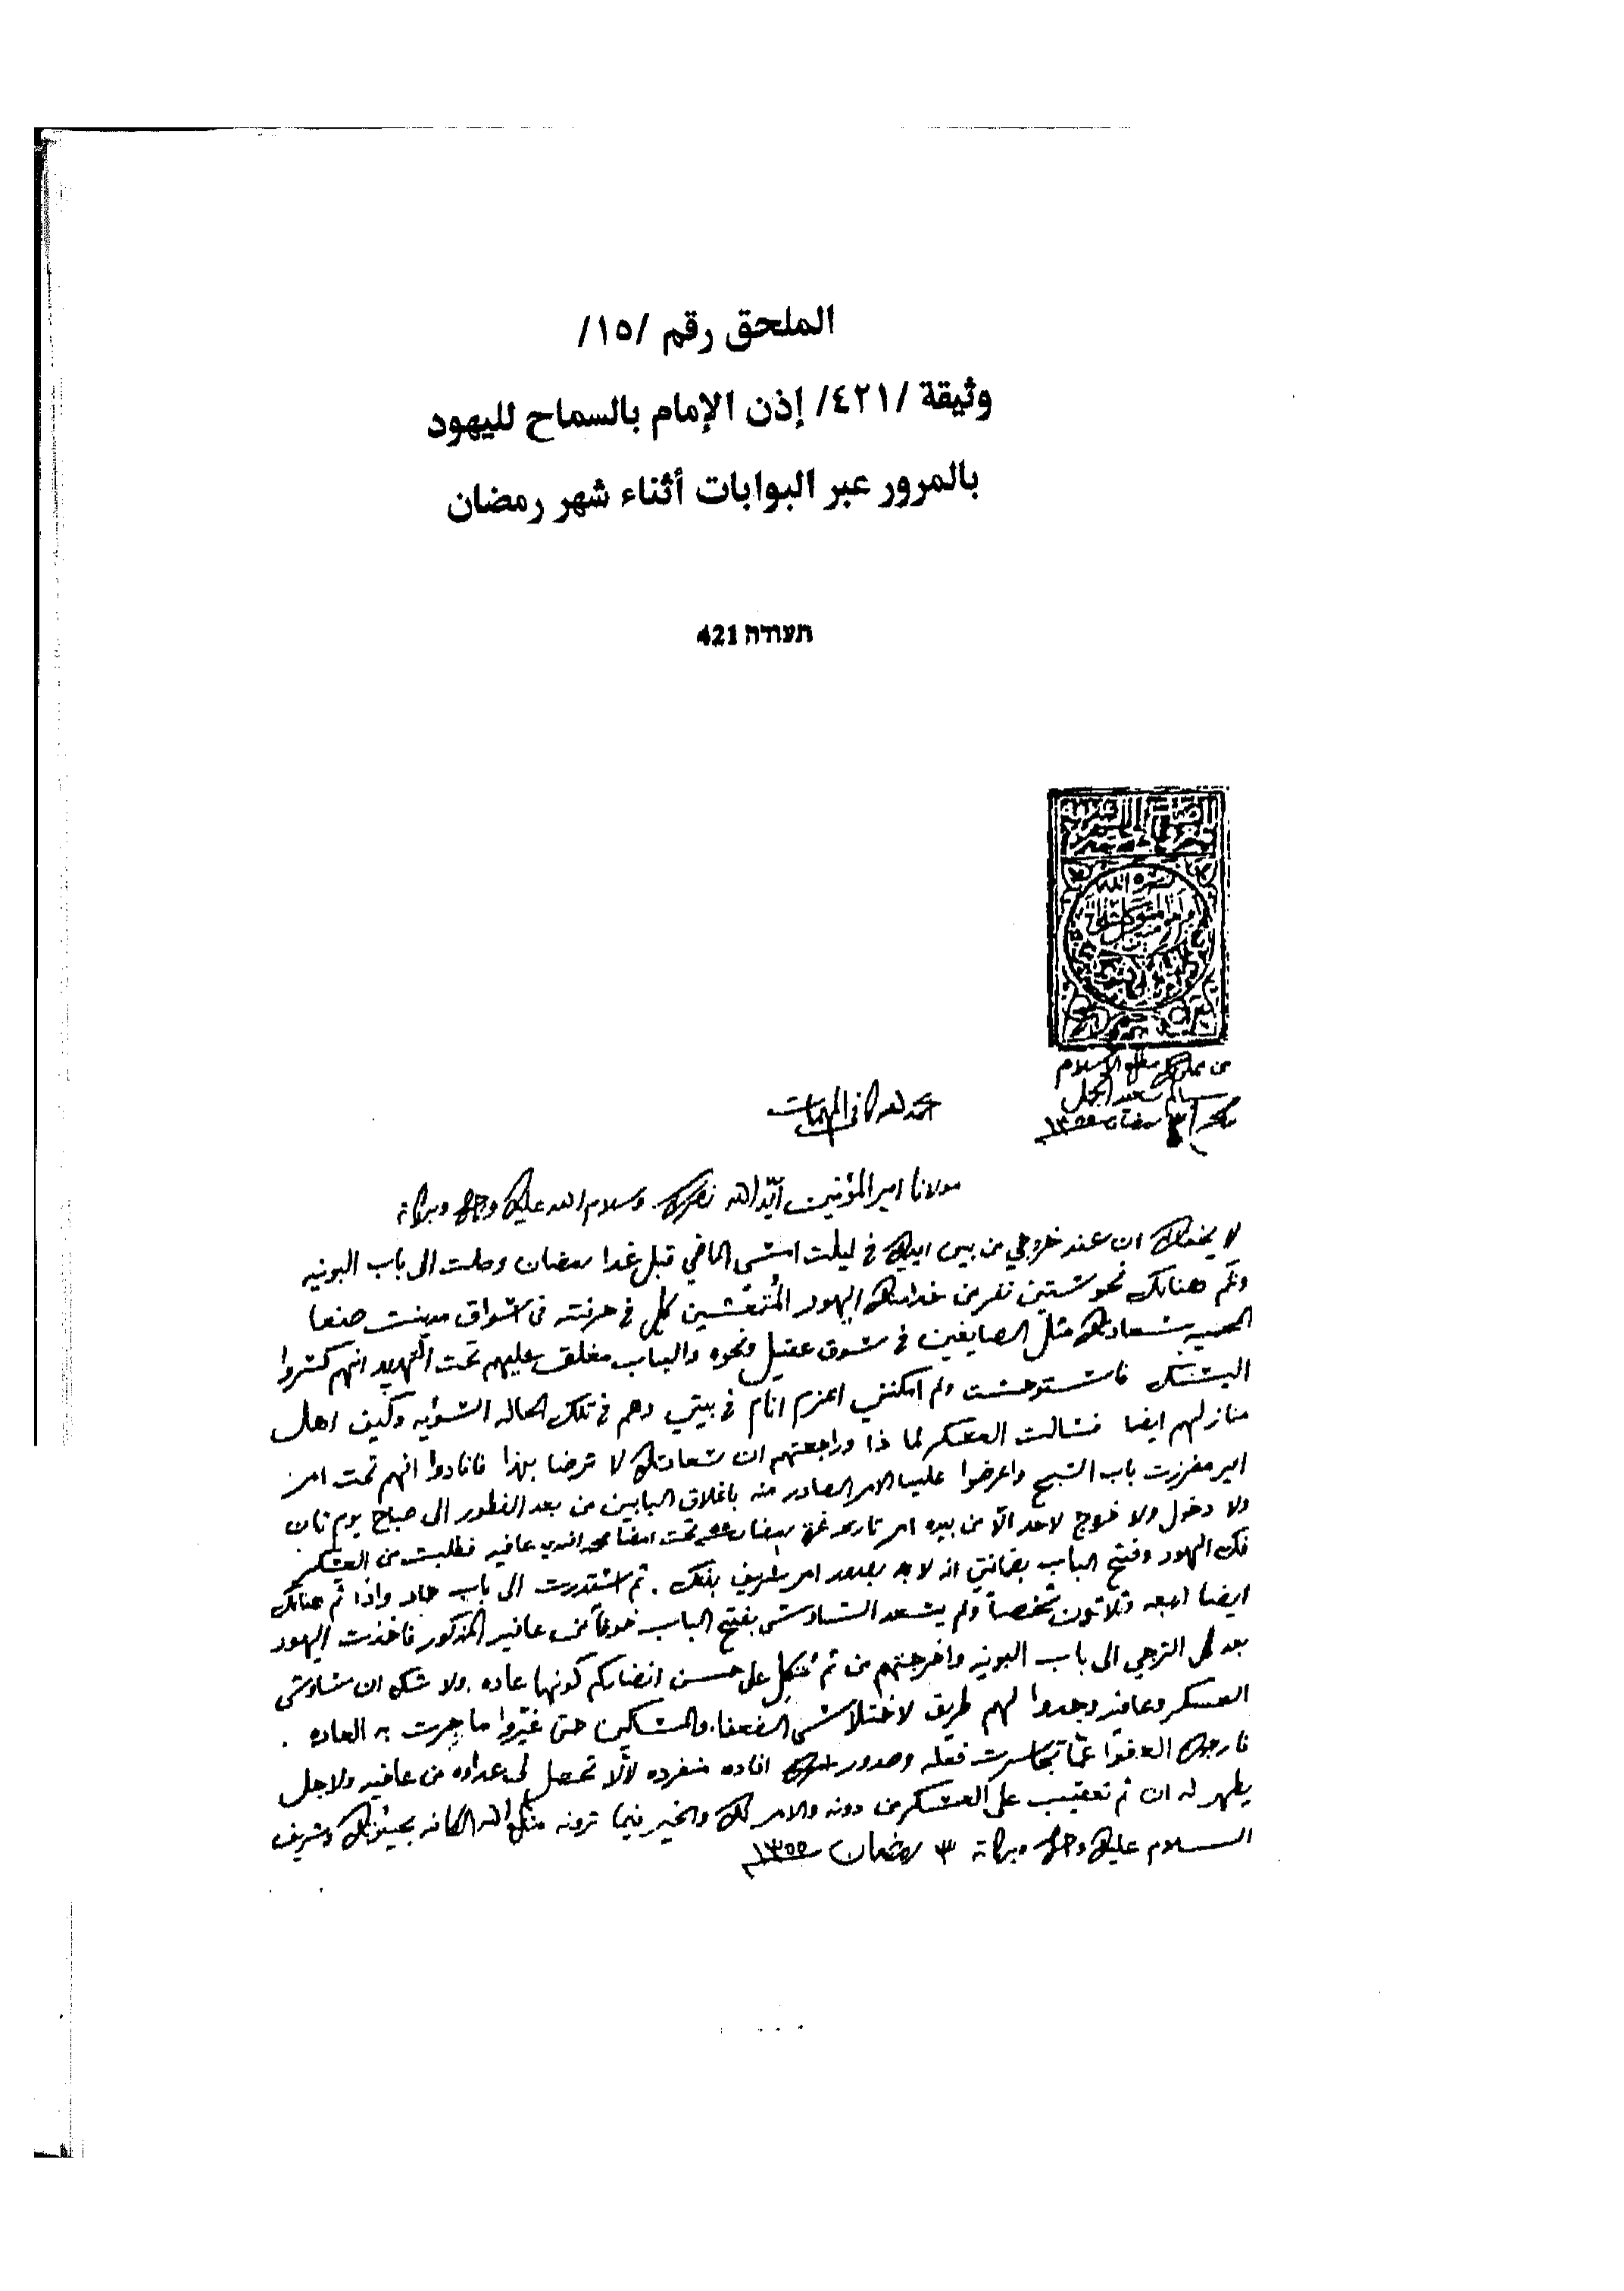 الملحق رقم /١٥/
وثيقة /٤٢١/ إذن الإمام بالسماح لليهود
بالمرور عبر البوابات أثناء شهر رمضان
תעודה 421
نصره الله
سالم سعيد الجمل
٣ رمضان ١٣٥٥
الحمد لله كافي المهمات
مولانا امير المؤمنين ايد الله نصرك وسلام الله عليك وبركاته
لا يخفاك ان عند خروجي من بين ايديك في ليلت امسى الماضي قبل غدا رمضان وصلت الى باب البونيه
وثم هنالك نحو ستين نفر من خدامتك اليهود المتغشين كل في حرفته في اسواق مدينت صنعا
المحميه بسعادتك مثل الصايفين في سوق عقيل ونحوه والباب مغلق عليهم تحت التهديد انهم كسروا
فاستوحشت ولم امكنني اعزم انام في بيتي وهم في تلك الحاله السوؤيه وكيف اهل
منازلهم ايضا فسالت العسكر لما ذا وراجعتهم ان سعادتك لا ترضا بهذا فافادوا انهم تحت امر
امير مفرزت باب السبح واعرضوا علينا الامر الصادر منه باغلاق البابين من بعد الفطور الى صباح يوم ثان
ولا دخول ولا خروج لاحد الا من بيده امر تاريخه غرة رمضان تحت امضا محمد افندي عافيه فطلبت من العسكر
فك اليهود وفتح الباب بضمانتي انه لا بد بصدر امر شريف بذلك . ثم استدرت الى باب واذا ثم هنالك
ايضا اربعه وثلاثون شخصاً ولم يسعد الشاوش بفتح الباب خوفاً من عافيه المذكور فاخذت اليهود
بعد كل الترجي الى باب البونيه واخرجتهم من ثم على حسن انصافكم كونها عاده . ولا شك ان شاوش
العسكر وعافيه وجدوا لهم طريق لاختلاس الضعفا والمساكين حتى غيروا ما جرت به العاده .
فارجوك العفو عما تجاسرت فعله وصدور افاده منفرده لألا تحصل لي عداوه من عافيه ولاجل
يظهر له ان ثم تعقيب على العسكر من دونه والامر لك والخير فيما ترونه الله الكافه وشريف
السلام عليك وبركاته ٣ رمضان ١٣٥٥